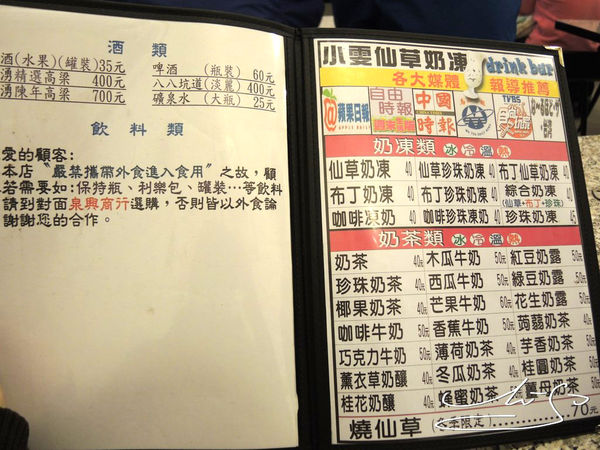 酒 類
酒(水果)(罐裝)35元
啤酒 (瓶裝) 60元
湧精選高粱 400元
八八坑道(淡麗) 400元
湧陳年高梁 700元
礦泉水 (大瓶) 25元
飲料類
愛的顧客:
本店〝嚴禁攜帶外食進入食用〞之故，顧
若需要如:保持瓶、利樂包、罐裝…等飲料
請到對面泉興商行選購，否則皆以外食論
謝謝您的合作。
小雯仙草奶凍
drink bar
各大媒體 報導推薦
蘋果日報
自由時報
中國時報
TVBS
奶凍類 冰冷溫熱
仙草奶凍 40 仙草珍珠奶凍 40 布丁仙草奶凍 40
布丁奶凍 40 布丁珍珠奶凍 40 綜合奶凍
(仙草+布丁+珍珠)
咖啡凍奶 40 咖啡珍珠凍奶 40 珍珠奶凍 45
奶茶類 冰冷溫熱
奶茶 40元 木瓜牛奶 50元 紅豆奶露 50元
珍珠奶茶 40元 西瓜牛奶 50元 綠豆奶露 50元
椰果奶茶 40元 芒果牛奶 60元 花生奶露 50元
咖啡牛奶 40元 香蕉牛奶 50元 蒟蒻奶茶 50元
巧克力牛奶 40元 薄荷奶茶 50元 芋香奶茶 50元
薰衣草奶釀 40元 冬瓜奶茶 50元 桂圓奶茶 50元
桂花奶釀 40元 蜂蜜奶茶 50元 益母奶茶
燒仙草 (冬季限定)..............70元